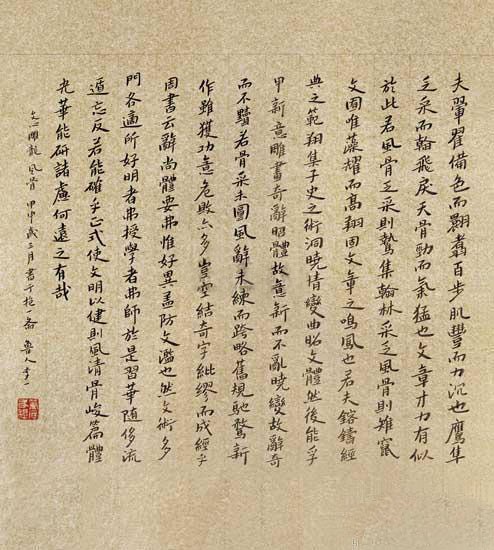 夫翬翟備色而翾翥百步肌豐而力沉也鷹隼
乏采而翰飛戾天骨勁而氣猛也文章才力有似
於此若風骨乏采則鷙集翰林采乏風骨則雉竄
文囿唯藻耀而高翔固文章之鳴鳳也若夫鎔鑄經
典之範翔集子史之術洞曉情變曲昭文體然後能孚
甲新意雕畫奇辭昭體故意新而不亂曉變故辭奇
而不黷若骨采未圓風辭未練而跨略舊規馳騖新
作雖獲巧意危敗亦多豈空結奇字紕繆而成經乎
周書云辭尚體要弗惟好異蓋防文濫也然文術多
門各適所好明者弗授學者弗師於是習華隨侈流
遁忘反若能確乎正式使文明以健則風清骨峻篇體
光華能研諸慮何遠之有哉
文心雕龍 風骨 甲申歲三月書于抱一齋 魯人李一